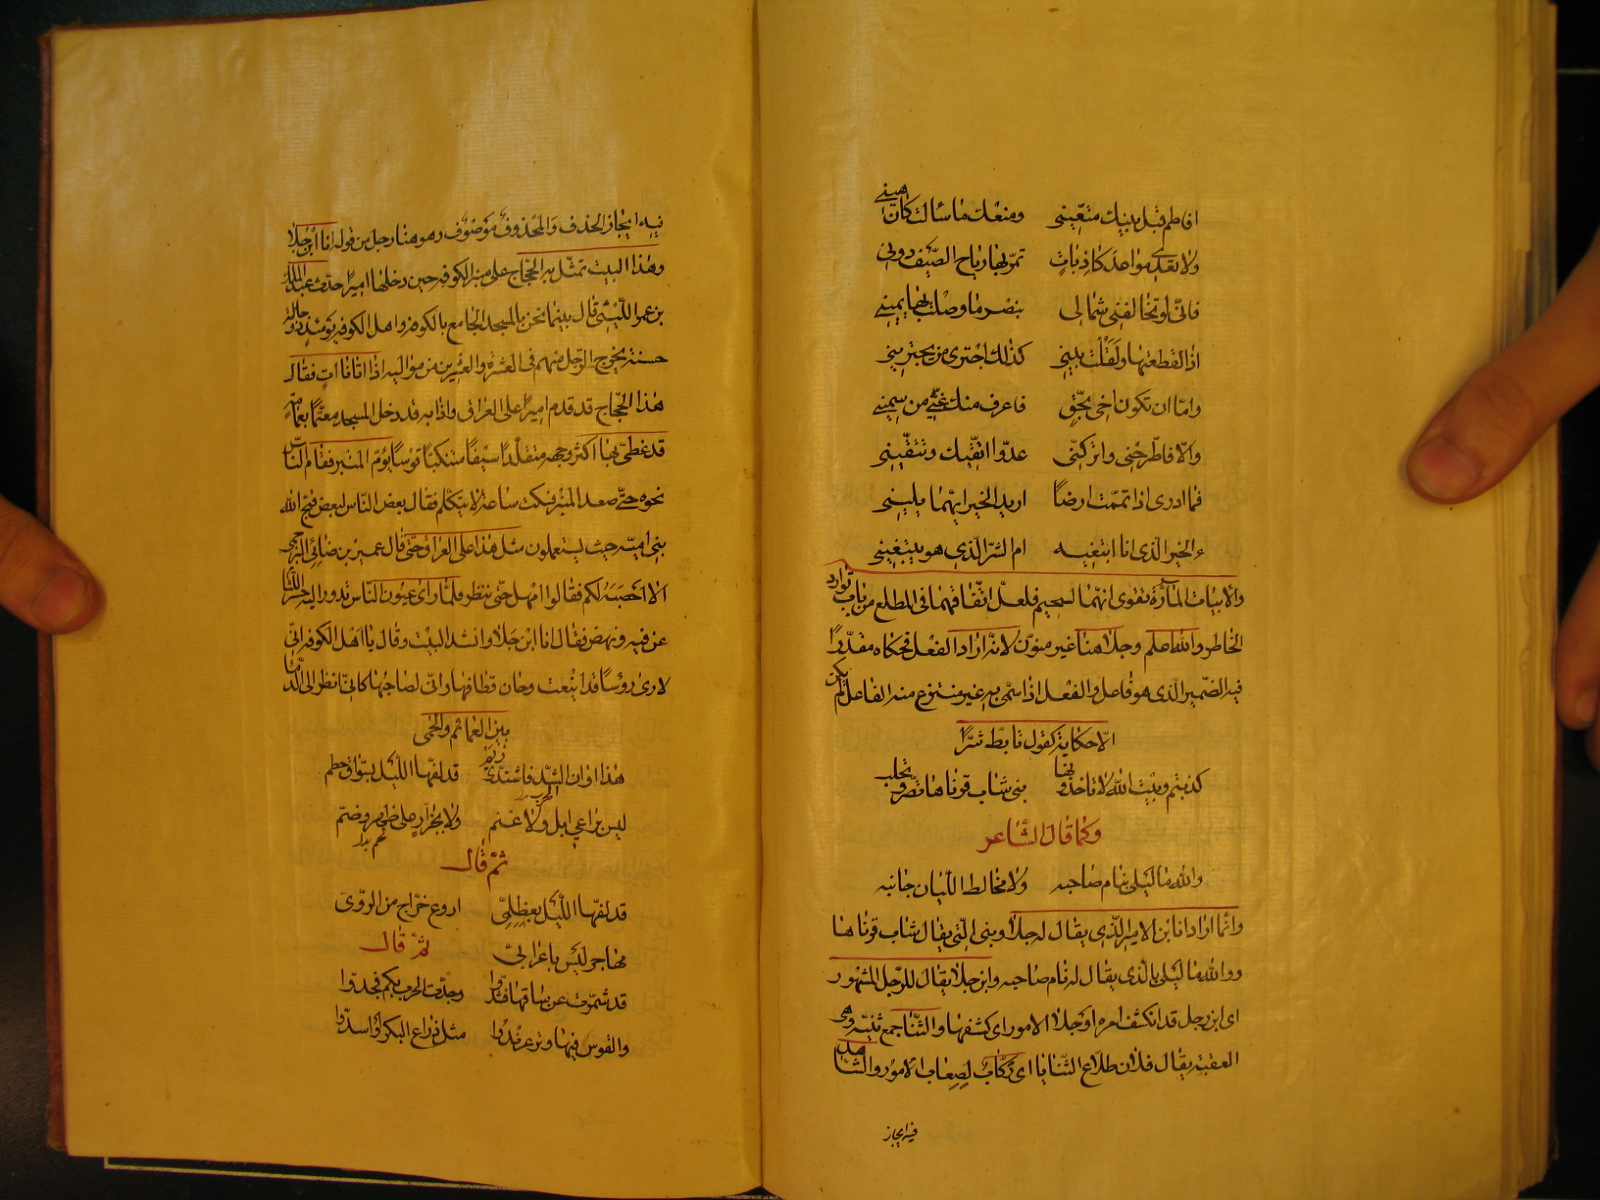 افاطم قبل بينك متعيني ومنعك ما سألت كان تبيني
ولا تعدي مواعد كاذبات تمر بها رياح الصيف دوني
فاني لو تخالفني شمالي بنصر ما وصلت بها يميني
اذا لقطعتها ولقلت بيني كذلك اجتوى من يجتويني
واما ان تكون اخي بحق فاعرف منك غثي من سميني
والا فاطرحني واتركني عدوا اتقيك وتتقيني
فما ادرى اذا تممت ارضا اريد الخير ايهما يليني
ءالخير الذى انا ابتغيه ام الشر الذى هو يبتغيني
والابيات المارة تقوى انهما لسحيم فلعل اتفاقهما فى المطلع من باب توارد
الخاطر والله اعلم وجلا هنا غير منون لانه اراد الفعل فحكاه مقدرا
فيه الضمير الذى هو فاعل والفعل اذا سمى به غير منتزع منه الفاعل لم يكن
الا حكاية كقول تابط شرا
كذبتم وبيت الله لا تاخذونها بنى شاب قرناها تصر وتحلب
وكما قال الشاعر
والله ما ليلى بنام صاحبه ولا مخالط الليان جانبه
وانما اراد انا ابن الامير الذى يقال له جلا وبنى التى يقال شاب قرناها
ووالله ما ليلى بالذى يقال له نام صاحبه وابن جلا يقال للرجل المشهور
اى ابن رجل قد انكشف امره او جلا الامور اى كشفها والثنايا جمع ثنية وهى
العقبة يقال فلان طلاع الثنايا اى ركاب لصعاب الامور والشاهد
فيه ايجاز
فيه ايجاز الحذف والمحذوف موصوف وهو هنا رجل من قوله انا ابن جلا
وهذا البيت تمثل به الحجاج على منبر الكوفه حين دخلها اميرا حدث عبد الملك
بن عمير الليثى قال بينما نحن بالمسجد الجامع بالكوفه واهل الكوفه يومئذ ذو حاله
حسنة يخرج الرجل منهم فى العشرة والعشرين من مواليه اذ اتانا ات فقال
هذا الحجاج قد قدم اميرا على العراق واذا به قد دخل المسجد معتما بعمامة
قد غطى بها اكثر وجهه متقلدا سيفا متنكبا قوسا يؤم المنبر فقام الناس
نحوه حتى صعد المنبر فمكث ساعة لا يتكلم فقال بعض الناس لبعض قبح الله
بنى امية حيث يستعملون مثل هذا على العراق حتى قال عمير بن ضابئ البرجمى
الا احصبه لكم فقالوا امهل حتى ننظر فلما راى عيون الناس تدور اليه حسر اللثام
عن فيه ونهض فقال انا ابن جلا وانشد البيت وقال يا اهل الكوفه انى
لارى رؤسا قد اينعت وحان قطافها وانى لصاحبها كانى انظر الى الدما
بين العمائم واللحى
هذا اوان الشد فاشتدى زيم قد لفها الليل بسواق حطم
ليس براعى ابل ولا غنم ولا بجزار على ظهر وضم
ثم قال
قد لفها الليل بعصلبى اروع خراج من الدوى
مهاجر ليس باعرابى ثم قال
قد شمرت عن ساقها فشدوا وجدت الحرب بكم فجدوا
والقوس فيها وتر عرد مثل ذراع البكر او اشد